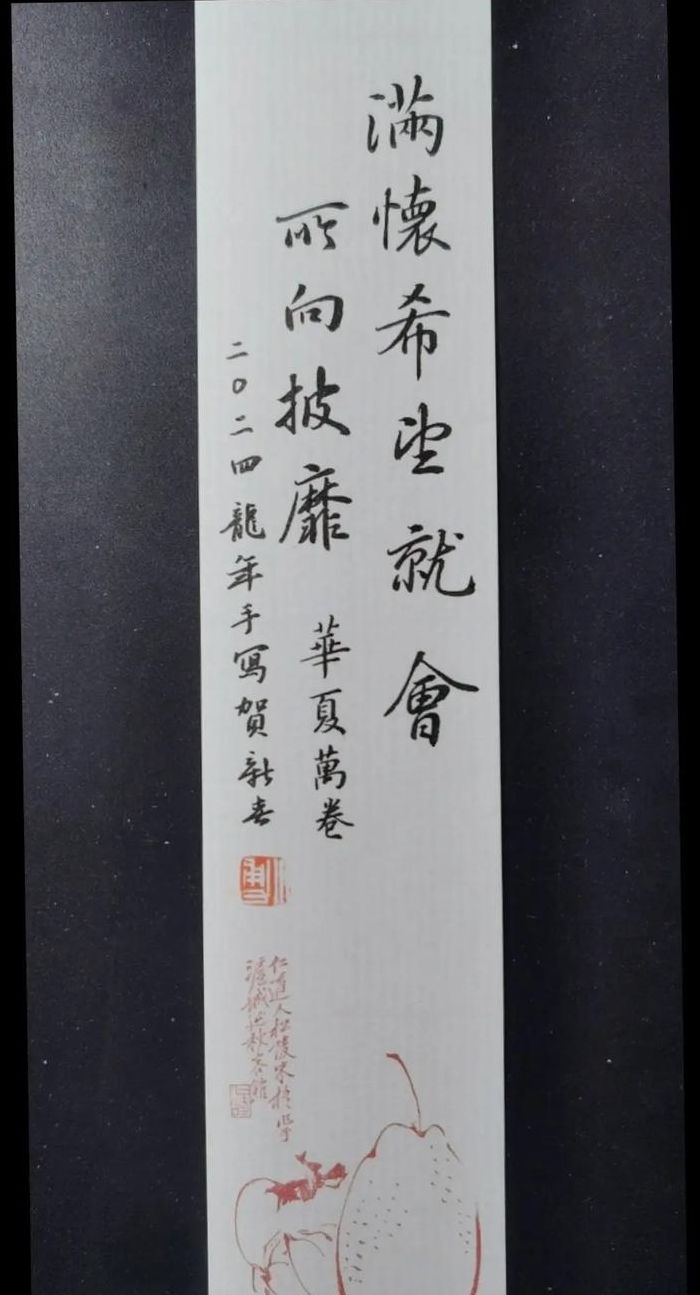 滿懷希望就會
所向披靡
華夏萬卷
二〇二四龍年手寫賀新春